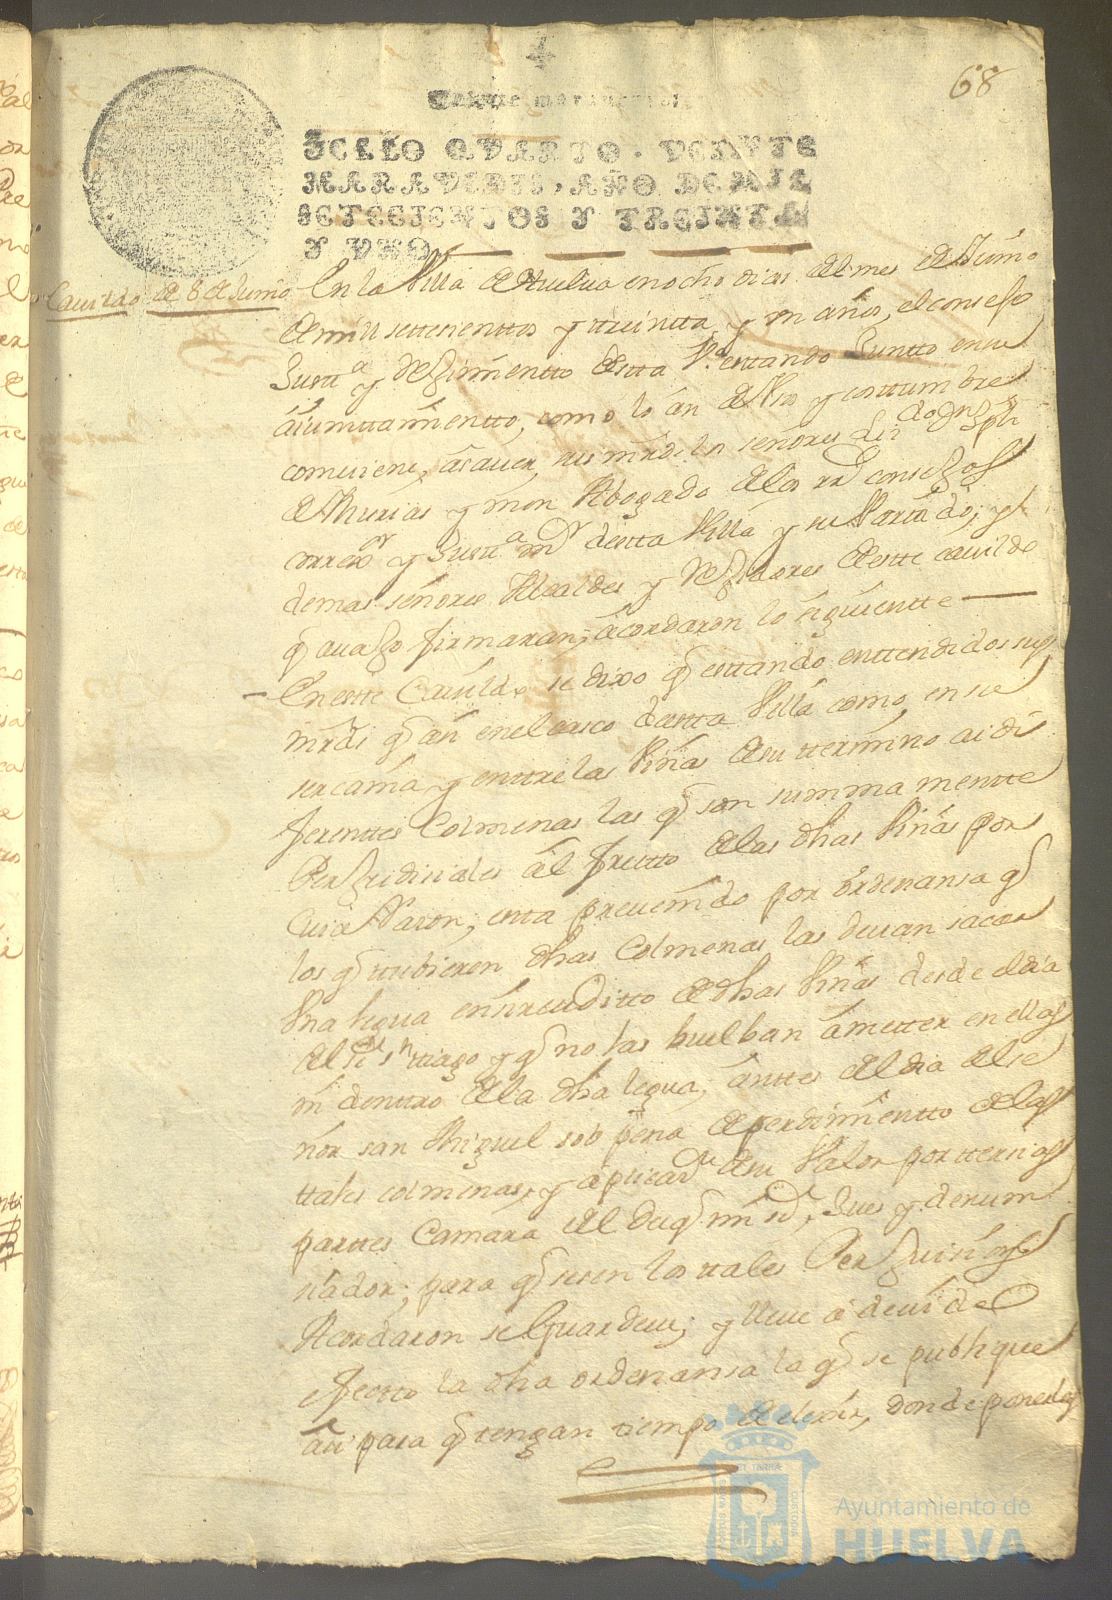 68
SELLO QVARTO, VEINTE
MARAVEDIS, AÑO DE MIL
SETECIENTOS Y TREINTA
Y VNO
Cauildo de 8 de Junio
En la Villa de Huelua en ocho dias del mes de Junio
de mill settecienttos y treintta y un años, el consejo
Justtª y Rejimientto desta Vª estando Juntto en su
aiunttamientto, como lo an de Vso y costtumbre
combiene, asauer, sus mrds los señores
de Murias y mon Abogado de los rs consejos
correxor y Justtª mor destta Villa y su Partido; y
demas señores Alcaldes y Rejidores deste cauildo
q auajo firmaran; acordaron lo siguientte
En este Cauildo se dixo q estando enttendidos sus
mrds q an en el casco destta Villa como en su
sercania y enttre las Viñas de su ttermino ai di
ferenttes Colmenas las q son summamentte
Perjudisiales al frutto de las dhas Viñas por
Cuia Razon; esta preuenido por ordenansa q
los q ttubieren dhas Colmenas las deuan sacar
Vna legua en sircuitto de dhas Viñas desde el dia
del Sr Snttiago y q no las buelban a metter en ellas
ni denttro de la dha legua, anttes del dia del se
ñor san Miguel sob pena de perdimientto de las
ttales colmenas, y aplicado su Valor por ttersias
parttes Camara del duq mi sr, Jues y denun
siador; para q sesen los ttales Perjuisios
Acordaron se Guarde; y lleue a deuido
efectto la dha ordenansa la q se publique
asi para q tengan tiempo de elexir, donde ponerlas
Ayuntamiento de
HUELVA